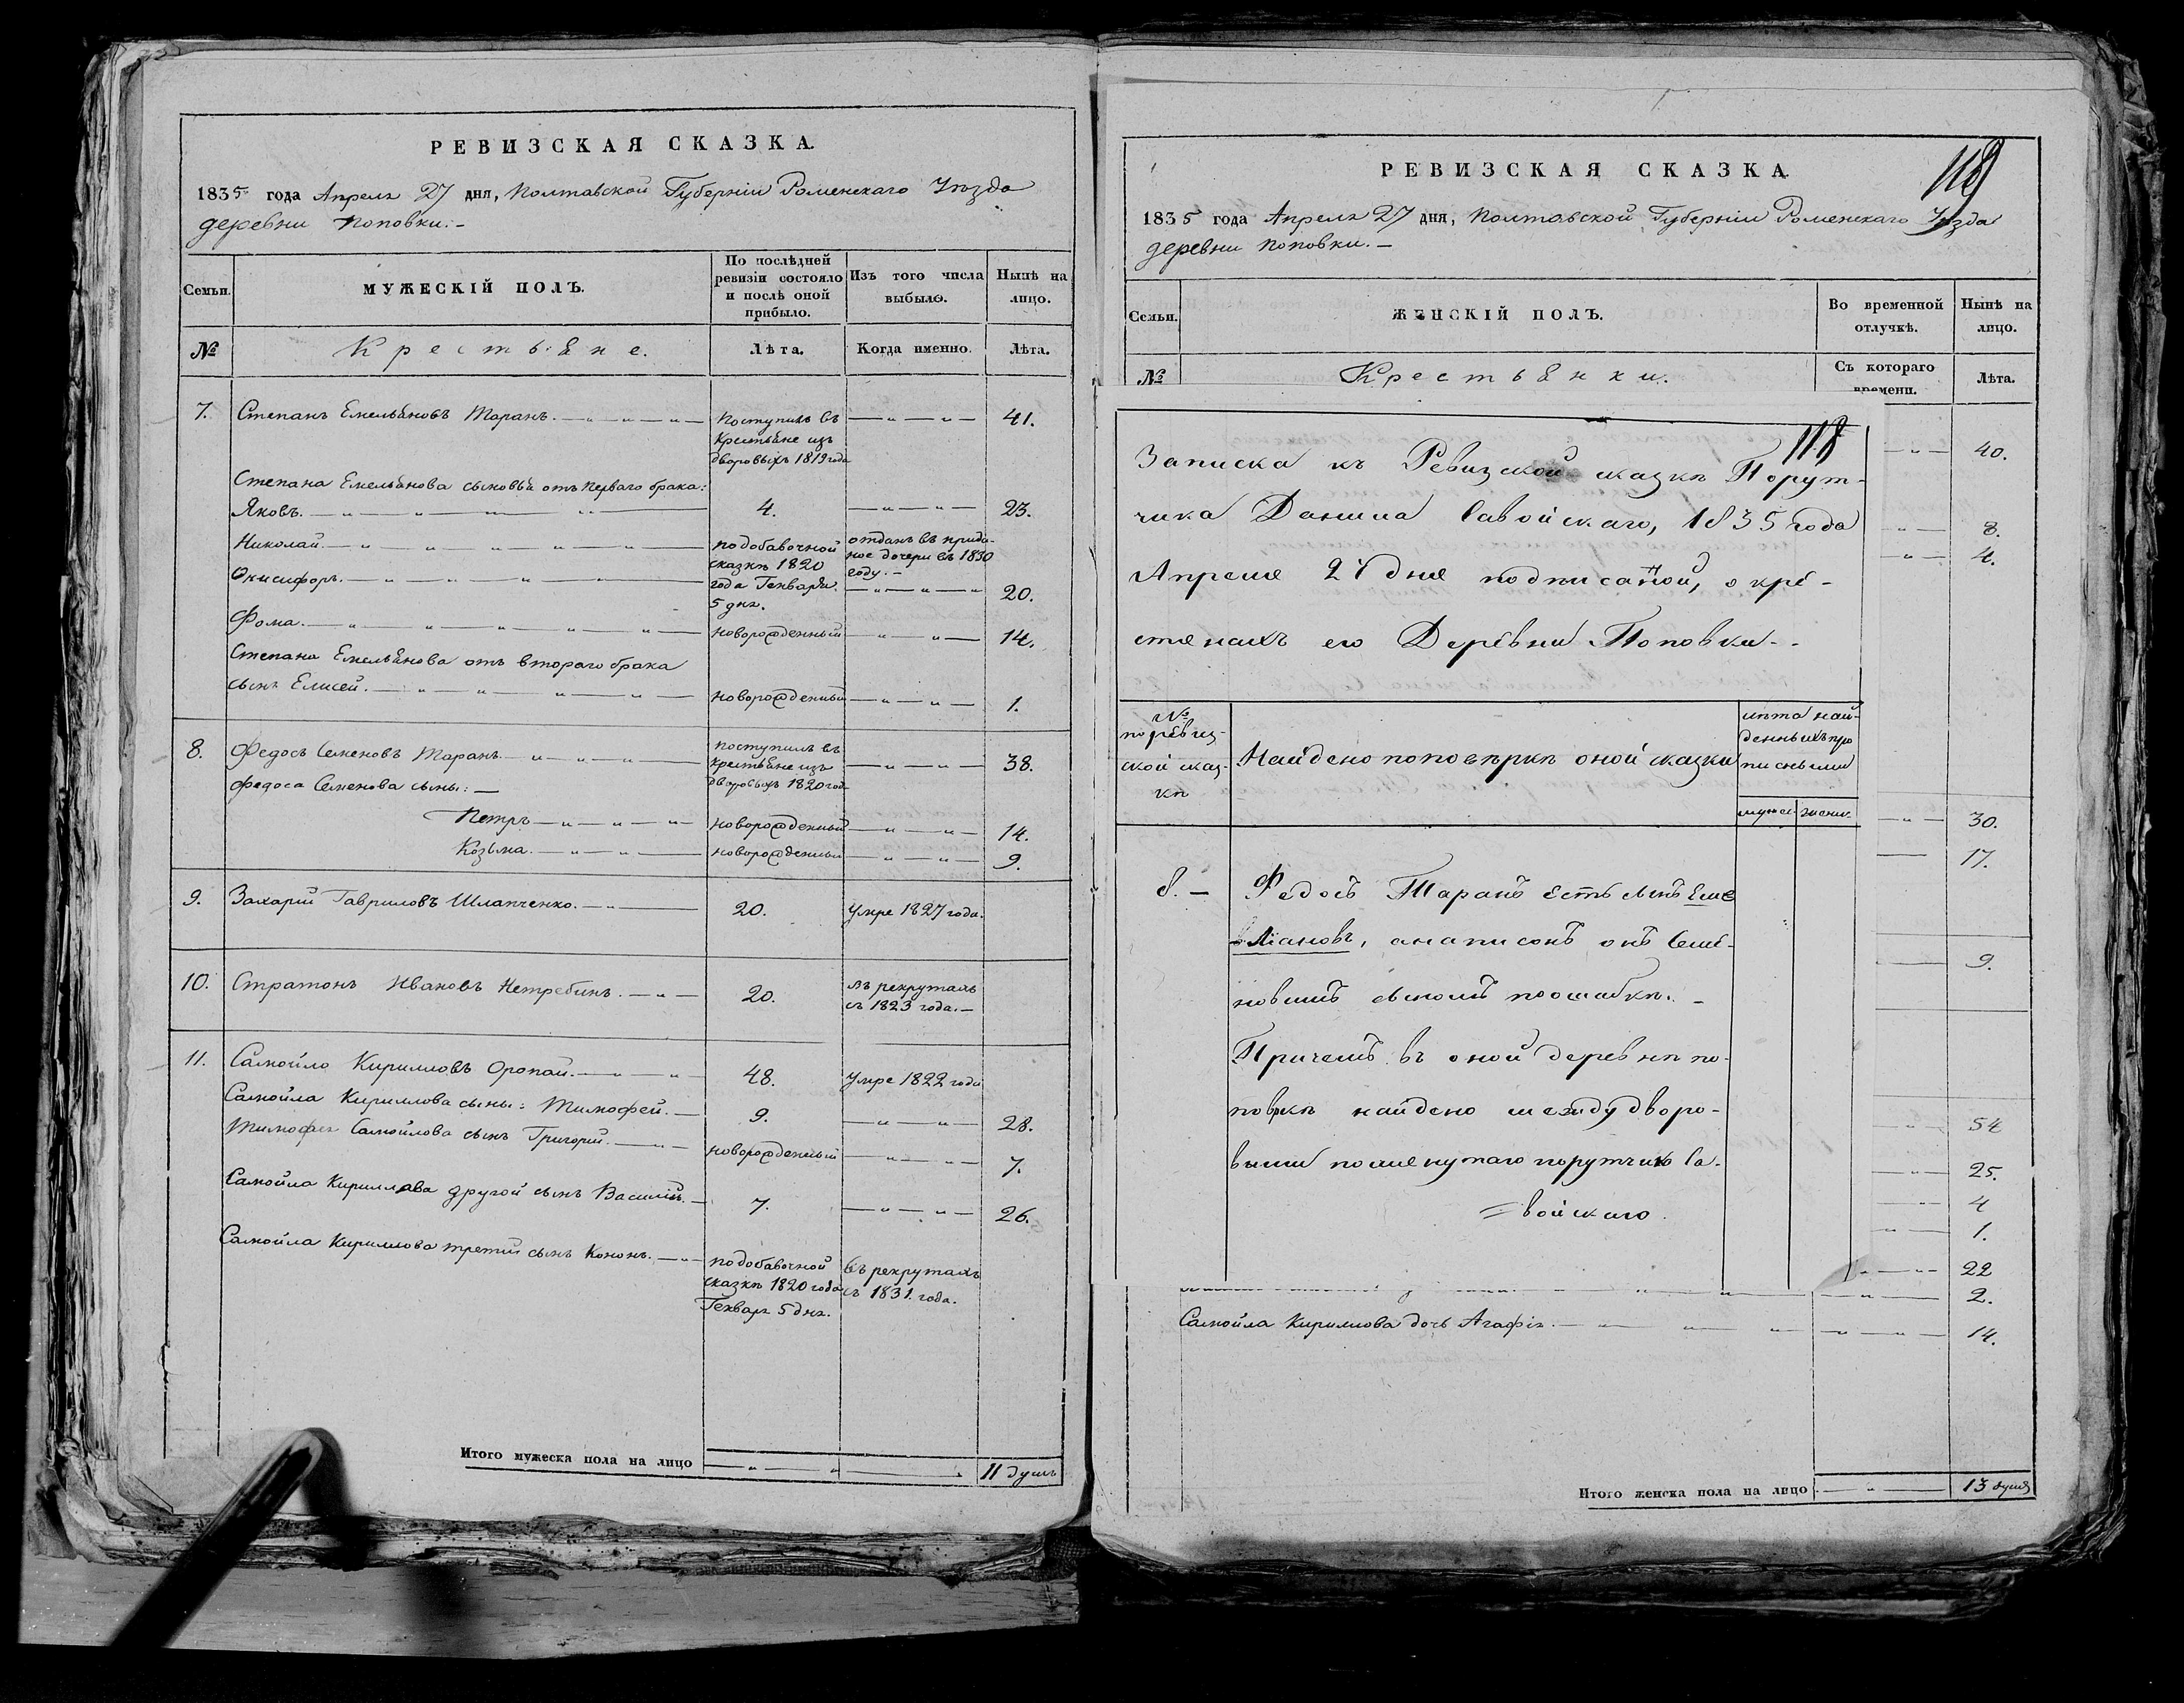 РЕВИЗСКАЯ СКАЗКА.
1835 года Апреля 27 дня, Полтавской Губерніи Роменскаго Уѣзда
деревни Поповки.-
Семьи.
МУЖЕСКІЙ ПОЛЪ.
По послѣдней
ревизіи состояло
и послѣ оной
прибыло.
Изъ того числа
выбыло.
Нынѣ на
лицо.
№
Крестьяне.
Лѣта.
Когда именно.
Лѣта.
7.
Степанъ Емельяновъ Таранъ.
Поступилъ въ
Крестьяне изъ
дворовыхъ 1819 года
41.
Степана Емельянова сыновья отъ перваго брака:
Яковъ.
4.
23.
Николай.
по добавочной
сказкѣ 1820
года Генваря.
5 дня.
отданъ въ прида-
ное дочери въ 1830
году.-
Онисифоръ.
20.
Фома.
новорожденный
14.
Степана Емельянова отъ втораго брака
сынъ Елисей.
новорожденный
1.
8.
Федосъ Семеновъ Таранъ.
поступилъ въ
крестьяне изъ
дворовыхъ 1820 года
38.
Федоса Семенова сыны:
Петръ
новорожденный
14.
Козьма.
новорожденный
9.
9.
Захарій Гавриловъ Шлапченко.
20.
Умре 1827 года.
10.
Стратонъ Ивановъ Нетребинъ.
20.
въ рекрутахъ
съ 1823 года.-
11.
Самойло Кирилловъ Оропай.
48.
Умре 1822 года
Самойла Кириллова сыны: Тимофей.
9.
28.
Тимофея Самойлова сынъ Григорій.
новорожденный
7.
Самойла Кириллова другой сынъ Василій.
7.
26.
Самойла Кириллова третій сынъ Кононъ.
по добавочной
сказкѣ 1820 года
Генваря 5 дня.
въ рекрутахъ
съ 1831. года.
Итого мужеска пола на лицо
11 душъ
РЕВИЗСКАЯ СКАЗКА.
119
1835 года Апреля 27 дня, Полтавской Губерніи Роменскаго Уѣзда
деревни Поповки.-
Семьи.
ЖЕНСКІЙ ПОЛЪ.
Во временной
отлучкѣ.
Нынѣ на
лицо.
№
Крестьянки.
Съ котораго
времени.
Лѣта.
118
Записка къ Ревизской сказкѣ Порут-
чика Данила Савойскаго, 1835 года
Апреля 27 дня подписаной, о кре-
стянахъ его Деревни Поповки.-
№
по ревиз-
ской сказ-
кѣ
Найдено поповѣркѣ оной сказки
лѣта най-
денныхъ про
писными
мужес.
женск.
8.-
Федосъ Таранъ есть сынъ Еме
льяновъ, а написонъ онъ Семе-
новымъ сыномъ поошибкѣ.-
Причемъ въ оной деревнѣ по-
повкѣ найдено между дворо-
выми помянутаго порутчика Са-
=войскаго.
40.
8.
4.
30.
17.
9.
54
25.
4
1.
22
2.
Самойла Кириллова дочь Агафія.
14.
Итого женска пола на лицо
13 душъ